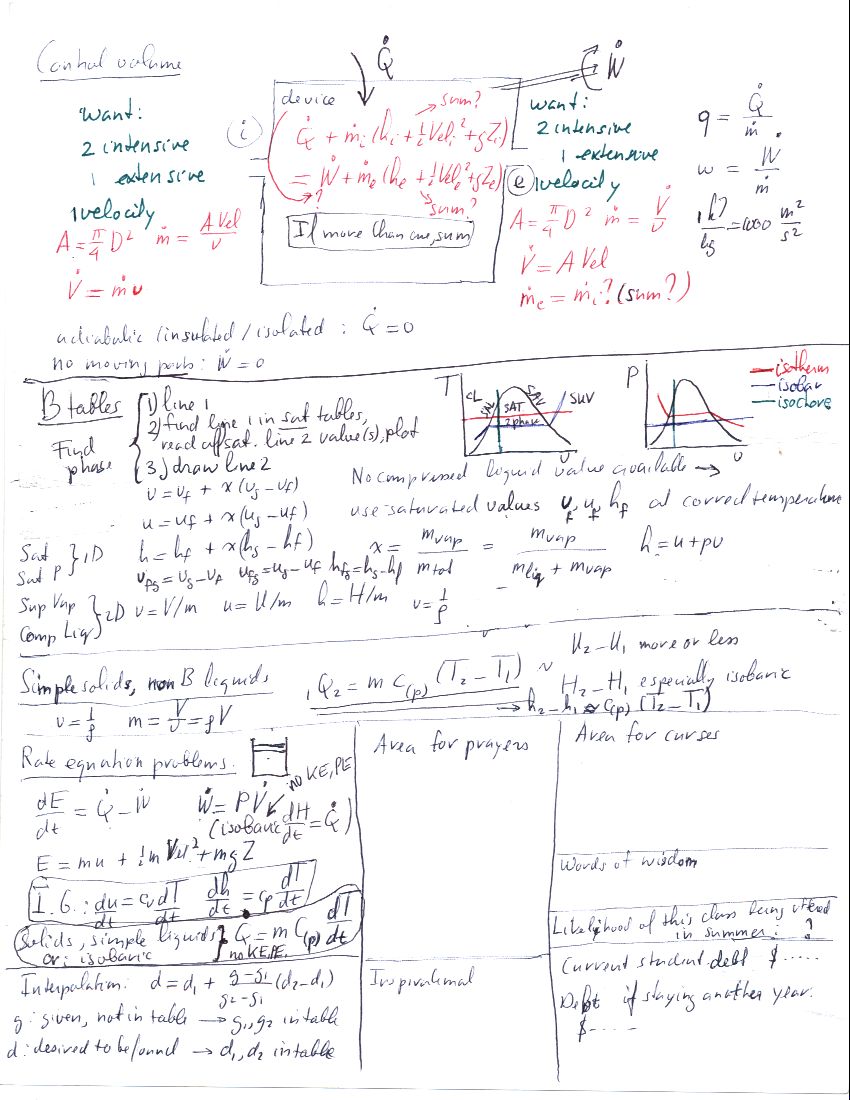 Control volume
Q̇
Ẇ
want:
2 intensive
1 extensive
1 velocity
A = π/4 D² ṁ = A Vel/v
V̇ = ṁ v
i
device
sum?
Q̇ + ṁi (hi + ½ Veli² + g Zi)
= Ẇ + ṁe (he + ½ Vele² + g Ze)
? sum?
If more than one, sum
e
want:
2 intensive
1 extensive
1 velocity
A = π/4 D² ṁ = V̇/v
V̇ = A Vel
ṁe = ṁi? (sum?)
q = Q̇/ṁ
w = Ẇ/ṁ
1 kJ/kg = 1000 m²/s²
adiabatic / insulated / isolated : Q̇ = 0
no moving parts : Ẇ = 0
B tables
Find phase
1) line 1
2) find line 1 in sat tables,
read off sat. line 2 value(s), plot
3) draw line 2
T
CL
SAT
2 phase
SUV
v
P
v
isotherm
isobar
isochore
No compressed liquid value available →
use saturated values vf uf hf at correct temperature
v = vf + x (vg − vf)
u = uf + x (ug − uf)
h = hf + x (hg − hf)
x = mvap/mtot = mvap/(mliq + mvap) h = u + pv
Sat T
Sat P } 1D
vfg = vg − vf ufg = ug − uf hfg = hg − hf
Sup Vap
Comp Liq } 2D v = V/m u = U/m h = H/m v = 1/ρ
Simple solids, non B liquids
v = 1/ρ m = V/v = ρV
1Q2 = m C(p) (T2 − T1) ~
U2 − U1 more or less
H2 − H1 especially isobaric
→ h2 − h1 ≈ C(p) (T2 − T1)
Rate equation problems.
dE/dt = Q̇ − Ẇ Ẇ = P V̇ no KE, PE
(isobaric dH/dt = Q̇)
E = mu + ½ m Vel.² + mgZ
I.G.: du/dt = cv dT/dt dh/dt = cp dT/dt
Solids, simple liquids
or: isobaric } Q̇ = m C(p) dT/dt
no KE, PE.
Interpolation: d = d1 + (g − g1)/(g2 − g1) (d2 − d1)
g: given, not in table → g1, g2 in table
d: desired to be found → d1, d2 in table
Area for prayers
Inspirational
Area for curses
Words of wisdom
Likelihood of this class being offered
in summer: ?
Current student debt $ .....
Debt if staying another year.
$ -----